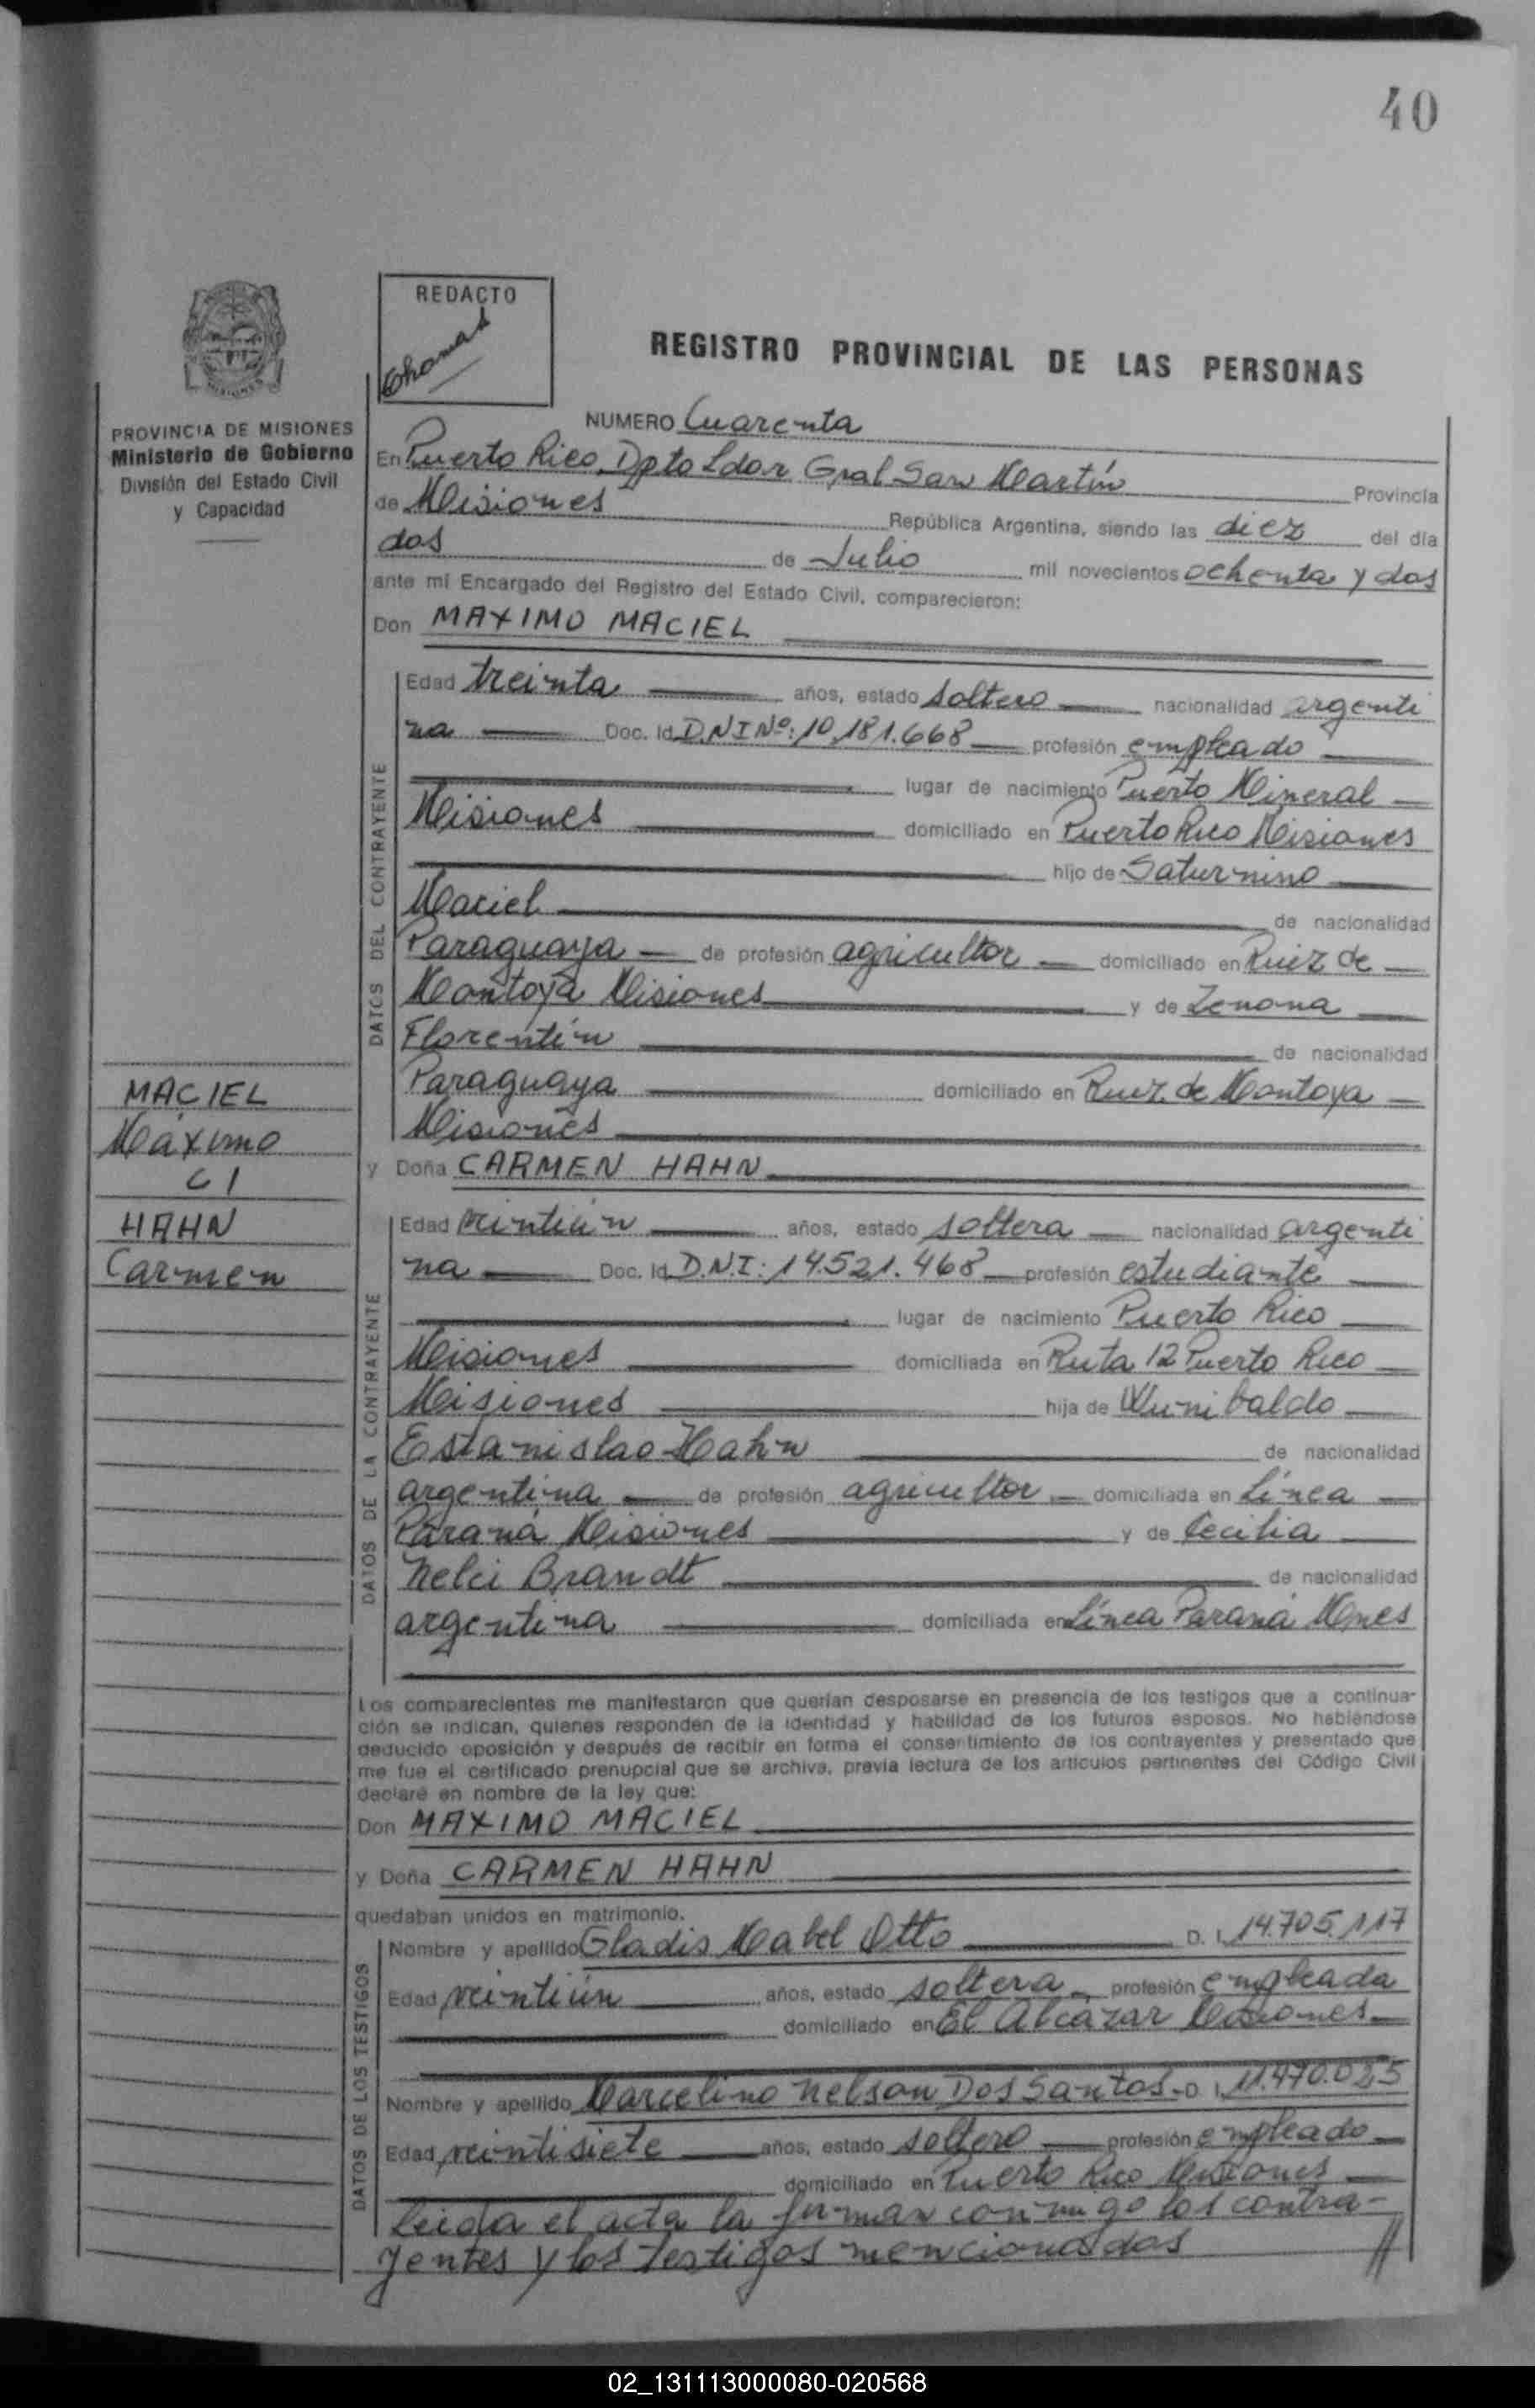 40
REDACTO
Chamas
REGISTRO PROVINCIAL DE LAS PERSONAS
PROVINCIA DE MISIONES
Ministerio de Gobierno
División del Estado Civil
y Capacidad
NUMERO Cuarenta
En Puerto Rico, Dpto Ldor Gral San Martín Provincia
de Misiones República Argentina, siendo las diez del día
dos de Julio mil novecientos ochenta y dos
ante mí Encargado del Registro del Estado Civil, comparecieron:
Don MAXIMO MACIEL
DATOS DEL CONTRAYENTE
Edad treinta años, estado soltero nacionalidad argenti
na Doc. Id. D.N.I Nº: 10.181.668 profesión empleado
lugar de nacimiento Puerto Mineral
Misiones domiciliado en Puerto Rico Misiones
hijo de Saturnino
Maciel de nacionalidad
Paraguaya de profesión agricultor domiciliado en Ruiz de
Montoya Misiones y de Zenona
Florentín de nacionalidad
Paraguaya domiciliado en Ruiz de Montoya
Misiones
MACIEL
Máximo
C1
HAHN
Carmen
y Doña CARMEN HAHN
DATOS DE LA CONTRAYENTE
Edad veintiún años, estado soltera nacionalidad argenti
na Doc. Id. D.N.I: 14.521.468 profesión estudiante
lugar de nacimiento Puerto Rico
Misiones domiciliada en Ruta 12 Puerto Rico
Misiones hija de Wunibaldo
Estanislao Hahn de nacionalidad
argentina de profesión agricultor domiciliada en Línea
Paraná Misiones y de Cecilia
Nelci Brandt de nacionalidad
argentina domiciliada en Línea Paraná Mnes
Los comparecientes me manifestaron que querían desposarse en presencia de los testigos que a continua-
ción se indican, quienes responden de la identidad y habilidad de los futuros esposos. No habiéndose
deducido oposición y después de recibir en forma el consentimiento de los contrayentes y presentado que
me fue el certificado prenupcial que se archiva, previa lectura de los artículos pertinentes del Código Civil
declaré en nombre de la ley que:
Don MAXIMO MACIEL
y Doña CARMEN HAHN
quedaban unidos en matrimonio.
DATOS DE LOS TESTIGOS
Nombre y apellido Gladis Mabel Otto D. I. 14.705.117
Edad veintiún años, estado soltera profesión empleada
domiciliado en El Alcázar Misiones
Nombre y apellido Marcelino Nelson Dos Santos D. I. 11.470.025
Edad veintisiete años, estado soltero profesión empleado
domiciliado en Puerto Rico Misiones
Leída el acta la firman conmigo los contra-
yentes y los testigos mencionados //
02_131113000080-020568